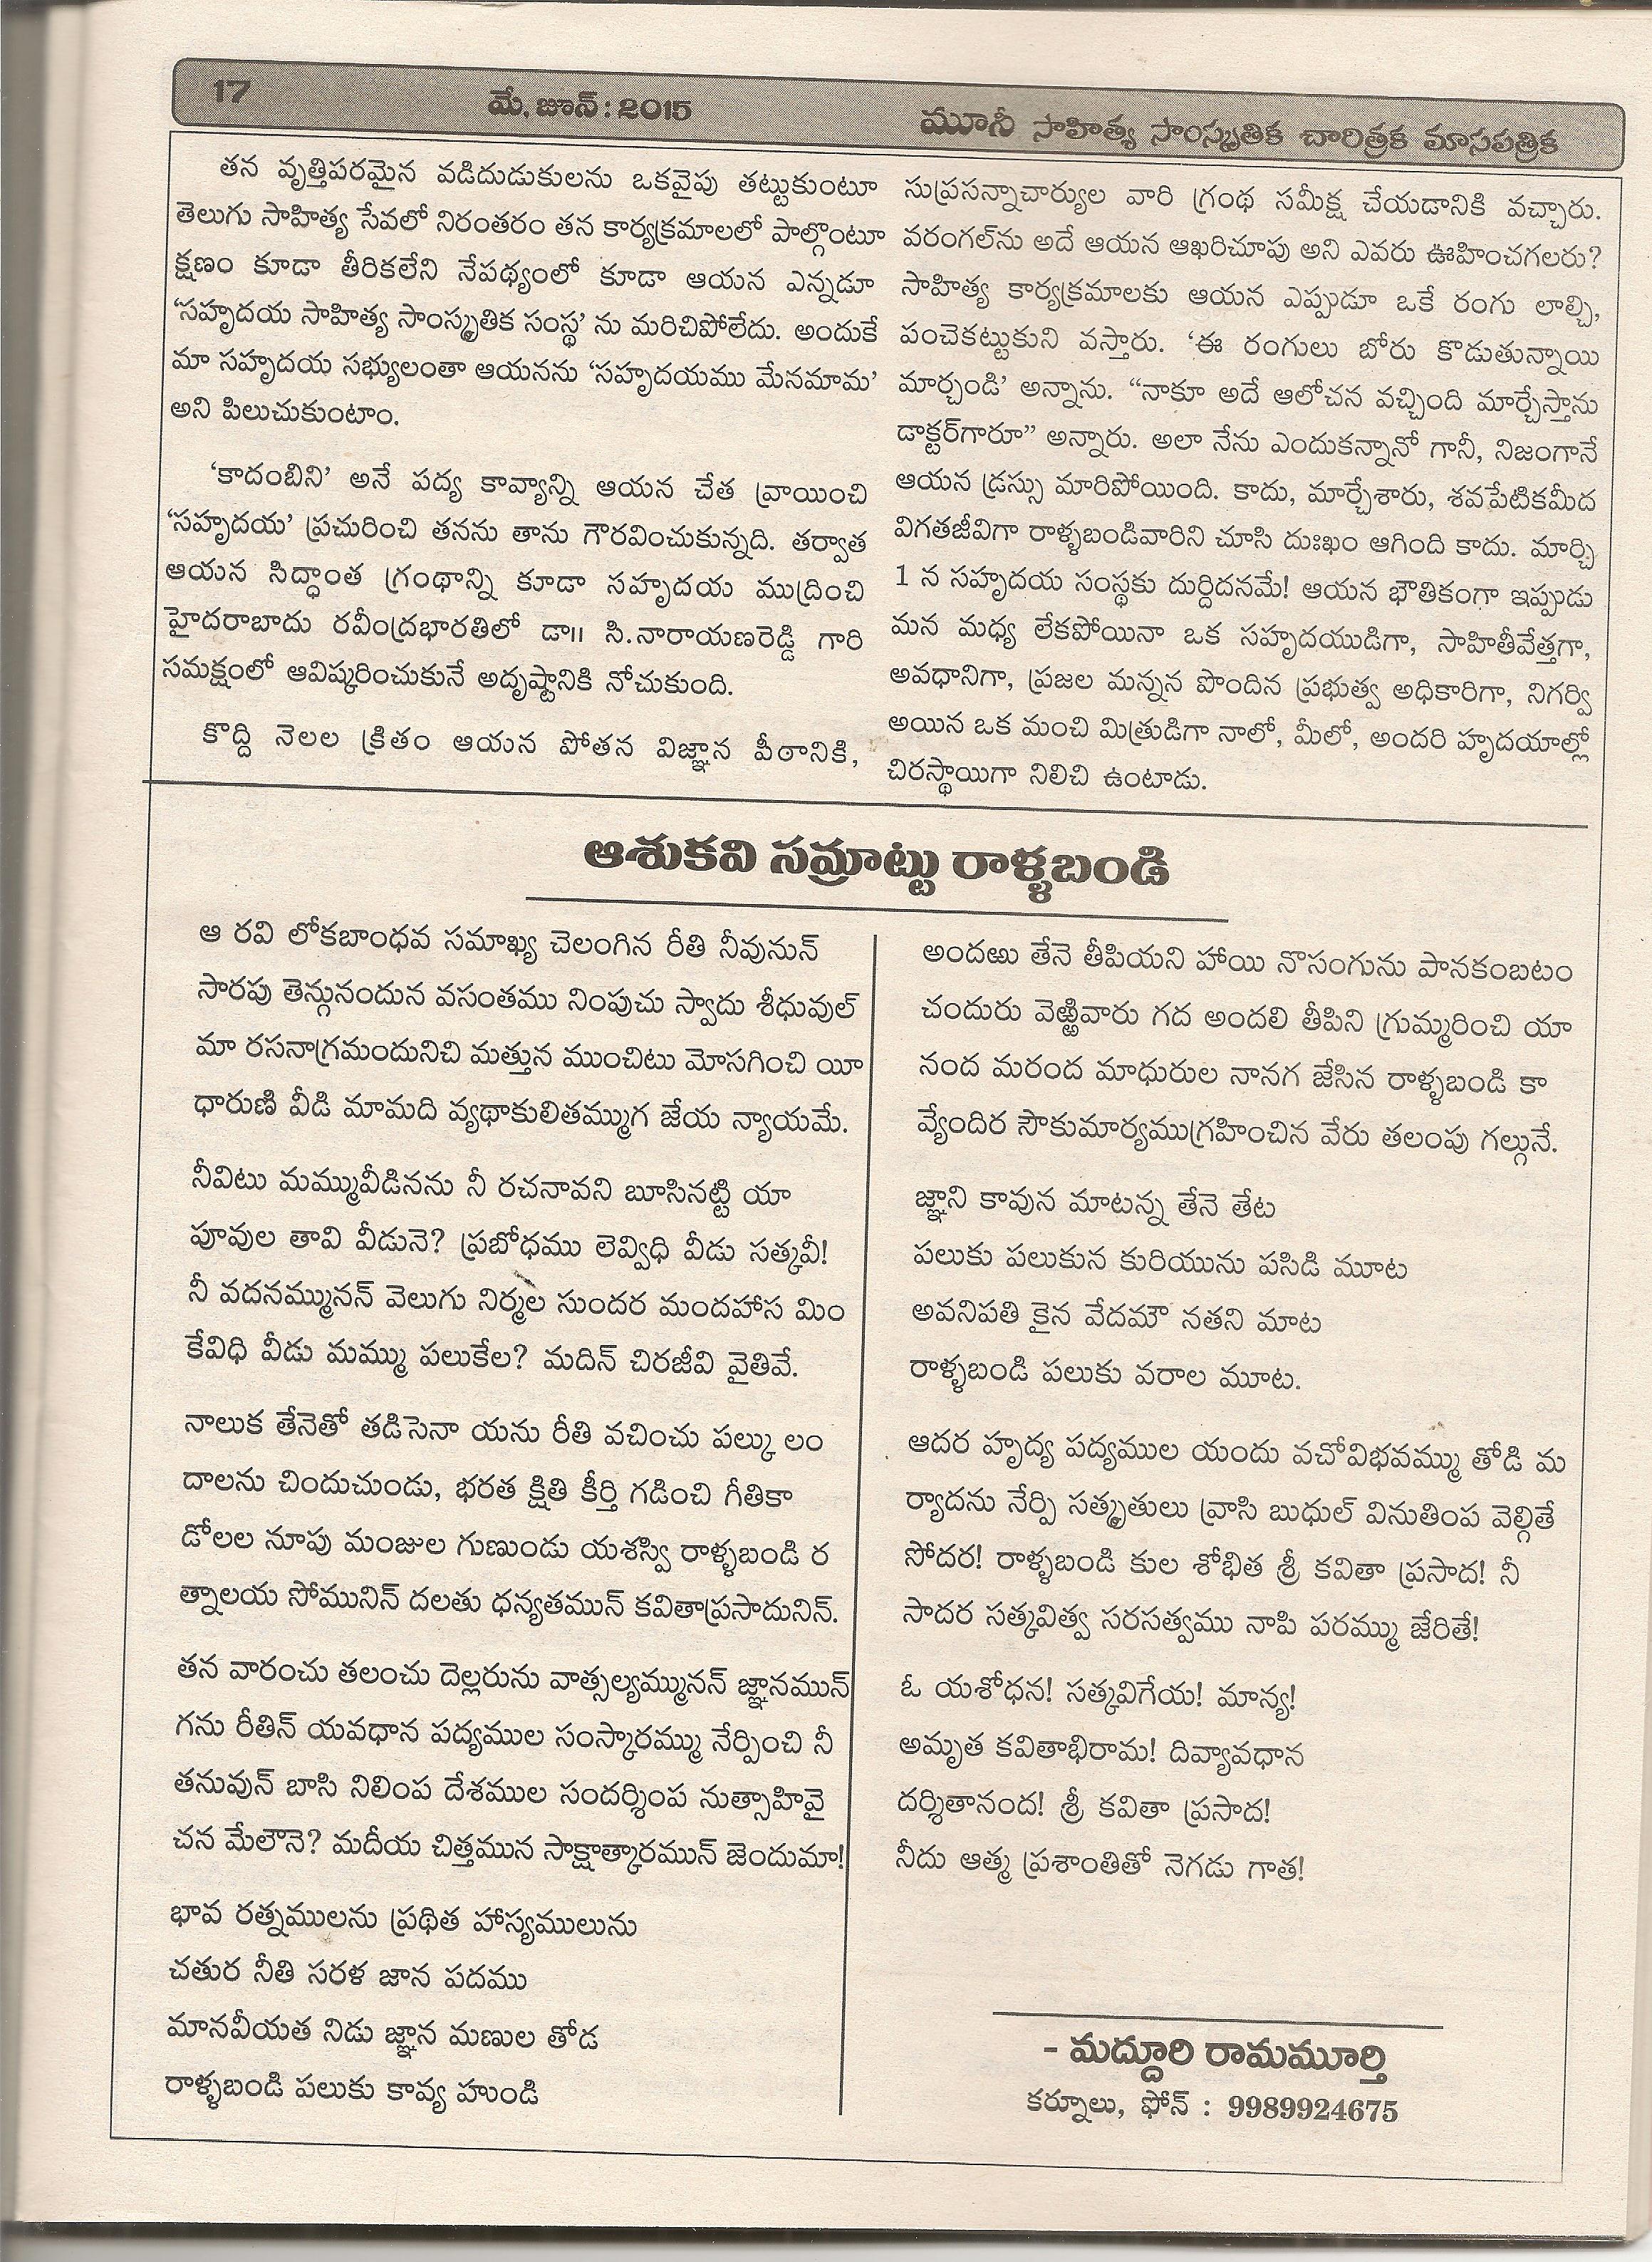 17
మే, జూన్ : 2015
మూసీ సాహిత్య సాంస్కృతిక చారిత్రక మాసపత్రిక
తన వృత్తిపరమైన వడిదుడుకులను ఒకవైపు తట్టుకుంటూ
తెలుగు సాహిత్య సేవలో నిరంతరం తన కార్యక్రమాలలో పాల్గొంటూ
క్షణం కూడా తీరికలేని నేపథ్యంలో కూడా ఆయన ఎన్నడూ
‘సహృదయ సాహిత్య సాంస్కృతిక సంస్థ’ ను మరిచిపోలేదు. అందుకే
మా సహృదయ సభ్యులంతా ఆయనను ‘సహృదయము మేనమామ’
అని పిలుచుకుంటాం.
‘కాదంబిని’ అనే పద్య కావ్యాన్ని ఆయన చేత వ్రాయించి
‘సహృదయ’ ప్రచురించి తనను తాను గౌరవించుకున్నది. తర్వాత
ఆయన సిద్ధాంత గ్రంథాన్ని కూడా సహృదయ ముద్రించి
హైదరాబాదు రవీంద్రభారతిలో డా॥ సి.నారాయణరెడ్డి గారి
సమక్షంలో ఆవిష్కరించుకునే అదృష్టానికి నోచుకుంది.
కొద్ది నెలల క్రితం ఆయన పోతన విజ్ఞాన పీఠానికి,
సుప్రసన్నాచార్యుల వారి గ్రంథ సమీక్ష చేయడానికి వచ్చారు.
వరంగల్‌ను అదే ఆయన ఆఖరిచూపు అని ఎవరు ఊహించగలరు?
సాహిత్య కార్యక్రమాలకు ఆయన ఎప్పుడూ ఒకే రంగు లాల్చి,
పంచెకట్టుకుని వస్తారు. ‘ఈ రంగులు బోరు కొడుతున్నాయి
మార్చండి’ అన్నాను. “నాకూ అదే ఆలోచన వచ్చింది మార్చేస్తాను
డాక్టర్‌గారూ” అన్నారు. అలా నేను ఎందుకన్నానో గానీ, నిజంగానే
ఆయన డ్రస్సు మారిపోయింది. కాదు, మార్చేశారు, శవపేటికమీద
విగతజీవిగా రాళ్ళబండివారిని చూసి దుఃఖం ఆగింది కాదు. మార్చి
1 న సహృదయ సంస్థకు దుర్దినమే! ఆయన భౌతికంగా ఇప్పుడు
మన మధ్య లేకపోయినా ఒక సహృదయుడిగా, సాహితీవేత్తగా,
అవధానిగా, ప్రజల మన్నన పొందిన ప్రభుత్వ అధికారిగా, నిగర్వి
అయిన ఒక మంచి మిత్రుడిగా నాలో, మీలో, అందరి హృదయాల్లో
చిరస్థాయిగా నిలిచి ఉంటాడు.
ఆశుకవి సమ్రాట్టు రాళ్ళబండి
ఆ రవి లోకబాంధవ సమాఖ్య చెలంగిన రీతి నీవునున్
సారపు తెన్గునందున వసంతము నింపుచు స్వాదు శీధువుల్
మా రసనాగ్రమందునిచి మత్తున ముంచిటు మోసగించి యీ
ధారుణి వీడి మామది వ్యథాకులితమ్ముగ జేయ న్యాయమే.
నీవిటు మమ్మువీడినను నీ రచనావని బూసినట్టి యా
పూవుల తావి వీడునె? ప్రబోధము లెవ్విధి వీడు సత్కవీ!
నీ వదనమ్మునన్ వెలుగు నిర్మల సుందర మందహాస మిం
కేవిధి వీడు మమ్ము పలుకేల? మదిన్ చిరజీవి వైతివే.
నాలుక తేనెతో తడిసెనా యను రీతి వచించు పల్కు లం
దాలను చిందుచుండు, భరత క్షితి కీర్తి గడించి గీతికా
డోలల నూపు మంజుల గుణుండు యశస్వి రాళ్ళబండి ర
త్నాలయ సోమునిన్ దలతు ధన్యతమున్ కవితాప్రసాదునిన్.
తన వారంచు తలంచు దెల్లరును వాత్సల్యమ్మునన్ జ్ఞానమున్
గను రీతిన్ యవధాన పద్యముల సంస్కారమ్ము నేర్పించి నీ
తనువున్ బాసి నిలింప దేశముల సందర్శింప నుత్సాహివై
చన మేలౌనె? మదీయ చిత్తమున సాక్షాత్కారమున్ జెందుమా!
భావ రత్నములను ప్రథిత హాస్యములును
చతుర నీతి సరళ జాన పదము
మానవీయత నిడు జ్ఞాన మణుల తోడ
రాళ్ళబండి పలుకు కావ్య హుండి
అందఱు తేనె తీపియని హాయి నొసంగును పానకంబటం
చందురు వెఱ్ఱివారు గద అందలి తీపిని గ్రుమ్మరించి యా
నంద మరంద మాధురుల నానగ జేసిన రాళ్ళబండి కా
వ్యేందిర సౌకుమార్యముగ్రహించిన వేరు తలంపు గల్గునే.
జ్ఞాని కావున మాటన్న తేనె తేట
పలుకు పలుకున కురియును పసిడి మూట
అవనిపతి కైన వేదమౌ నతని మాట
రాళ్ళబండి పలుకు వరాల మూట.
ఆదర హృద్య పద్యముల యందు వచోవిభవమ్ము తోడి మ
ర్యాదను నేర్పి సత్కృతులు వ్రాసి బుధుల్ వినుతింప వెల్గితే
సోదర! రాళ్ళబండి కుల శోభిత శ్రీ కవితా ప్రసాద! నీ
సాదర సత్కవిత్వ సరసత్వము నాపి పరమ్ము జేరితే!
ఓ యశోధన! సత్కవిగేయ! మాన్య!
అమృత కవితాభిరామ! దివ్యావధాన
దర్శితానంద! శ్రీ కవితా ప్రసాద!
నీదు ఆత్మ ప్రశాంతితో నెగడు గాత!
- మద్దూరి రామమూర్తి
కర్నూలు, ఫోన్ : 9989924675